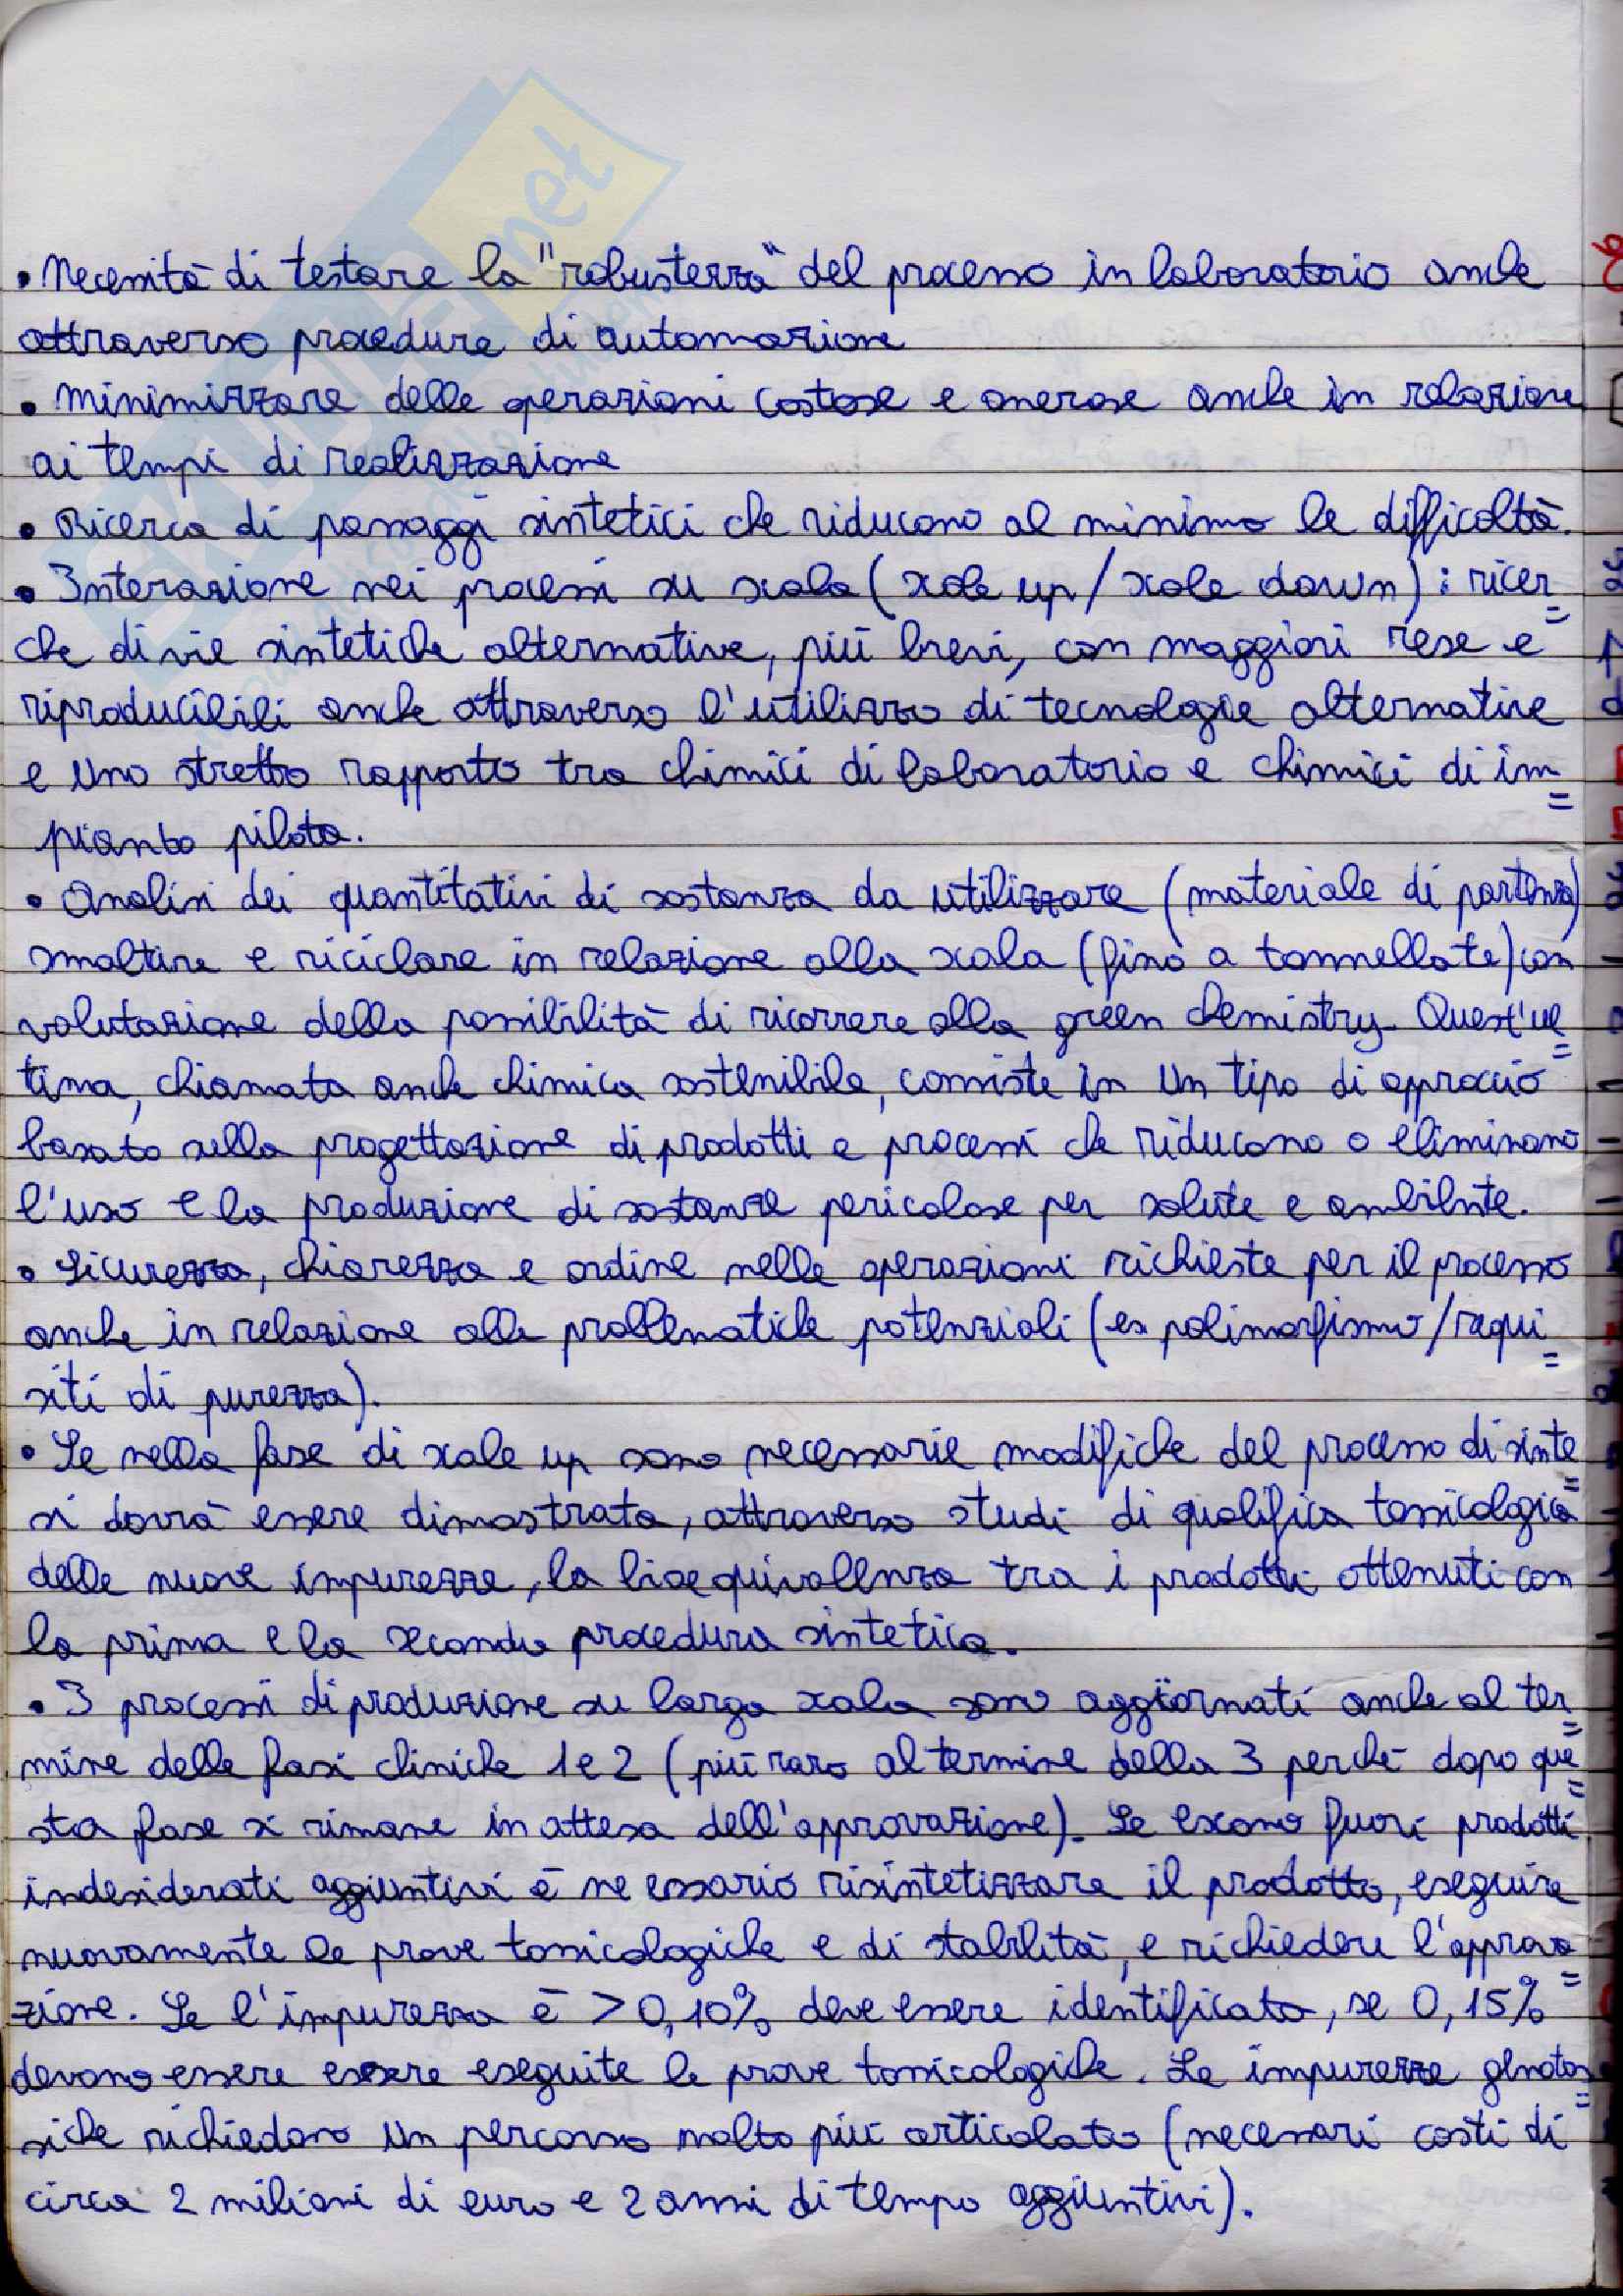 SKUOLA.net
• Necessità di testare la "robustezza" del processo in laboratorio anche
attraverso procedure di automazione
• minimizzare delle operazioni costose e onerose anche in relazione
ai tempi di realizzazione
• Ricerca di passaggi sintetici che riducono al minimo le difficoltà.
• Interazione nei processi su scala (scale up/scale down): ricer=
che di vie sintetiche alternative, più brevi, con maggiori rese e
riproducibili anche attraverso l'utilizzo di tecnologie alternative
e uno stretto rapporto tra chimici di laboratorio e chimici di im=
pianto pilota.
• Analisi dei quantitativi di sostanza da utilizzare (materiale di partenza)
smaltire e riciclare in relazione alla scala (fino a tonnellate) con
valutazione della possibilità di ricorrere alla green chemistry. Quest'ul=
tima, chiamata anche chimica sostenibile, consiste in un tipo di approccio
basato sulla progettazione di prodotti e processi che riducono o eliminano
l'uso e la produzione di sostanze pericolose per salute e ambiente.
• Sicurezza, chiarezza e ordine nelle operazioni richieste per il processo
anche in relazione alle problematiche potenziali (es polimorfismo/requi=
siti di purezza).
• Se nella fase di scale up sono necessarie modifiche del processo di sinte=
si dovrà essere dimostrata, attraverso studi di qualifica tossicologica
delle nuove impurezze, la bioequivalenza tra i prodotti ottenuti con
la prima e la seconda procedura sintetica.
• I processi di produzione su larga scala sono aggiornati anche al ter=
mine delle fasi cliniche 1 e 2 (più raro al termine della 3 perché dopo que=
sta fase si rimane in attesa dell'approvazione). Se escono fuori prodotti
indesiderati aggiuntivi è necessario risintetizzare il prodotto, eseguire
nuovamente le prove tossicologiche e di stabilità, e richiedere l'approva=
zione. Se l'impurezza è >0,10% deve essere identificata, se 0,15%
devono essere essere eseguite le prove tossicologiche. Le impurezze genotos=
siche richiedono un percorso molto più articolato (necessari costi di
circa 2 milioni di euro e 2 anni di tempo aggiuntivi).